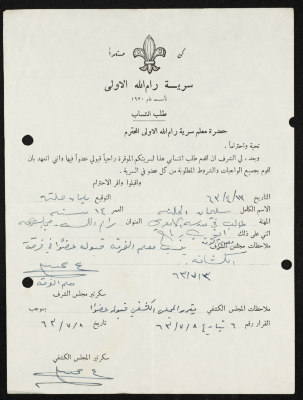 كن مستعداً
سرية رام الله الاولى
تأسست عام ١٩٣٠
طلب انتساب
حضرة معلم سرية رام الله الاولى المحترم
تحية واحتراماً ،
وبعد ، لي الشرف ان اقدم طلب انتسابي هذا لسريتكم الموقرة راجياً قبولي عضواً فيها واني اتعهد بأن
اقوم بجميع الواجبات والشروط المطلوبة من كل عضو في السرية .
واقبلوا وافر الاحترام
التاريخ ٦٣/٤/ التوقيع سليمان
الاسم الكامل سليمان العمر ١٤ سنة
المهنة طالب في مدرسة العنوان رام الله
التي على ذلك
ملاحظات مجلس الشرف معلم الفرقة قبوله عضواً في فرقة
الكشافة .
٦٣/٧/٣
معلم الفرقة
سكرتير مجلس الشرف
ملاحظات المجلس الكشفي يقرر المجلس الكشفي قبوله عضواً بموجب
القرار رقم ٦ تاريخ ٦٣/٧/٨ تاريخ ٦٣/٧/٨
سكرتير المجلس الكشفي